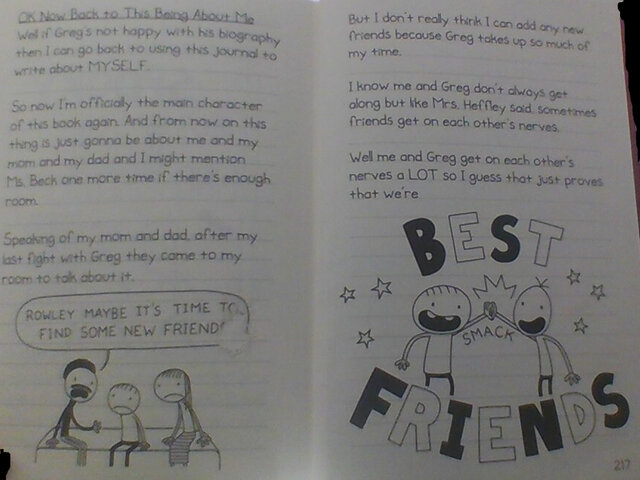 OK Now Back to This Being About Me
Well if Greg's not happy with his biography
then I can go back to using this journal to
write about MYSELF.
So now I'm officially the main character
of this book again. And from now on this
thing is just gonna be about me and my
mom and my dad and I might mention
Ms. Beck one more time if there's enough
room.
Speaking of my mom and dad, after my
last fight with Greg they came to my
room to talk about it.
ROWLEY MAYBE IT'S TIME TO
FIND SOME NEW FRIENDS
But I don't really think I can add any new
friends because Greg takes up so much of
my time.
I know me and Greg don't always get
along but like Mrs. Heffley said, sometimes
friends get on each other's nerves.
Well me and Greg get on each other's
nerves a LOT so I guess that just proves
that we're
BEST
SMACK
FRIENDS
217